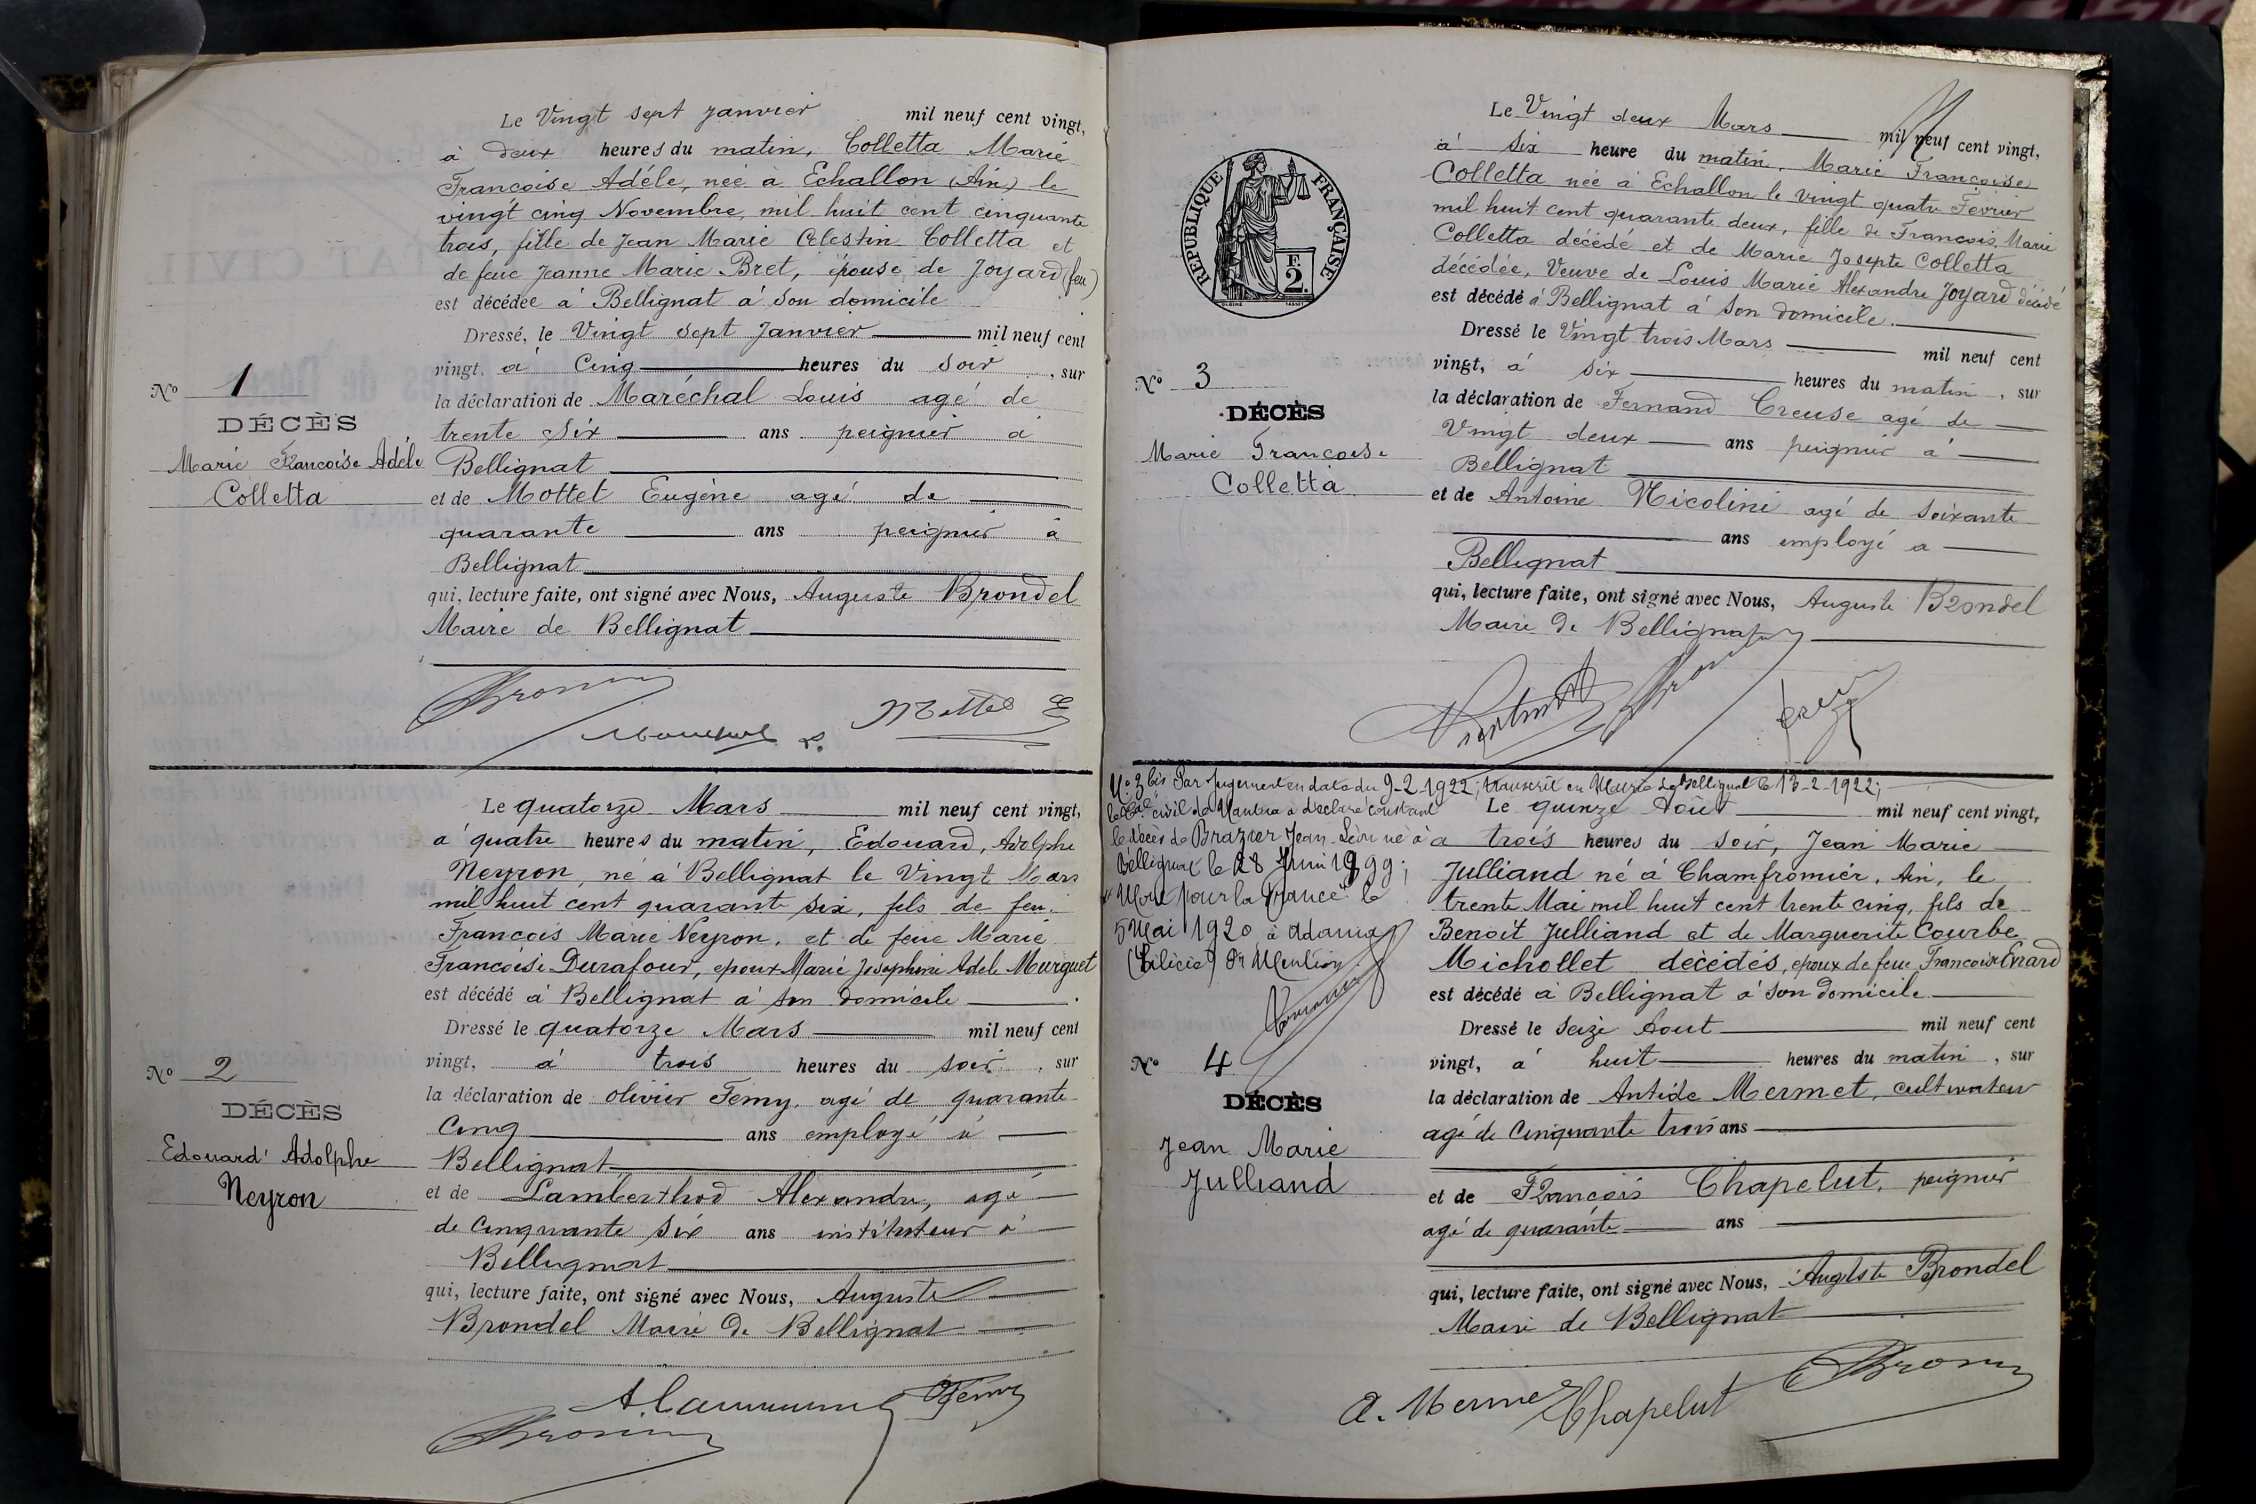 Le Vingt sept Janvier mil neuf cent vingt,
à deux heures du matin, Colletta Marie
Françoise Adéle, née à Echallon (Ain) le
vingt cinq Novembre mil huit cent cinquante
trois, fille de Jean Marie Célestin Colletta et
de feue Jeanne Marie Bret, épouse de Joyard (feu)
est décédée à Bellignat à son domicile
Dressé, le Vingt sept Janvier mil neuf cent
vingt, à Cinq heures du soir, sur
la déclaration de Maréchal Louis agé de
trente Six ans peignier à
Bellignat
et de Mottet Eugène agé de
quarante ans peignier à
Bellignat
qui, lecture faite, ont signé avec Nous, Auguste Brondel
Maire de Bellignat
No 1
DÉCÈS
Marie Françoise Adéle
Colletta
Mottet E
Le quatorze Mars mil neuf cent vingt,
à quatre heures du matin, Edouard, Adolphe
Neyron, né à Bellignat le Vingt Mars
mil huit cent quarante six, fils de feu
François Marie Neyron, et de feue Marie
Françoise Durafour, epoux Marie Josephine Adele Murguet
est décédé à Bellignat à son domicile
Dressé le quatorze Mars mil neuf cent
vingt, à trois heures du soir, sur
la déclaration de olivier Femy, agé de quarante
Cinq ans employé à
Bellignat
et de Lamberthod Alexandre, agé
de Cinquante Six ans instituteur à
Bellignat
qui, lecture faite, ont signé avec Nous, Auguste
Brondel Maire de Bellignat
No 2
DÉCÈS
Edouard Adolphe
Neyron
Femy
RÉPUBLIQUE FRANÇAISE
F.
2.
Le Vingt deux Mars mil neuf cent vingt,
à six heure du matin, Marie Françoise
Colletta née à Echallon le vingt quatre Février
mil huit cent quarante deux, fille de François Marie
Colletta décédé et de Marie Josepte Colletta
décédée, Veuve de Louis Marie Alexandre Joyard décédé
est décédé à Bellignat à son domicile.
Dressé le Vingt trois Mars mil neuf cent
vingt, à six heures du matin, sur
la déclaration de Fernand Creuse agé de
Vingt deux ans peignier à
Bellignat
et de Antoine Nicolini agé de soixante
ans employé a
Bellignat
qui, lecture faite, ont signé avec Nous, Auguste Brondel
Maire de Bellignat
No 3
DÉCÈS
Marie Françoise
Colletta
No 3 bis Par Jugement en date du 9-2-1922; transcrit en Mairie de Bellignat le 13-2-1922;
civil de Nantua a déclaré constant
le décès de Brazier Jean Léon né à
Bellignat le 28 Juin 1899;
"Mort pour la France" le
5 Mai 1920 à Adana
(Cilicie) Dr Mention
Le quinze Août mil neuf cent vingt,
à trois heures du soir, Jean Marie
Julliand né à Chamfromier, Ain, le
trente Mai mil huit cent trente cinq, fils de
Benoit Julliand et de Marguerite Courbe
Michollet décédés, epoux de feue Françoise Evrard
est décédé à Bellignat à son domicile
Dressé le seize Aout mil neuf cent
vingt, à huit heures du matin, sur
la déclaration de Antide Mermet, cultivateur
agé de Cinquante trois ans
et de François Chapelut, peignier
agé de quarante ans
qui, lecture faite, ont signé avec Nous, Auguste Brondel
Maire de Bellignat
No 4
DÉCÈS
Jean Marie
Julliand
A. Mermet Chapelut